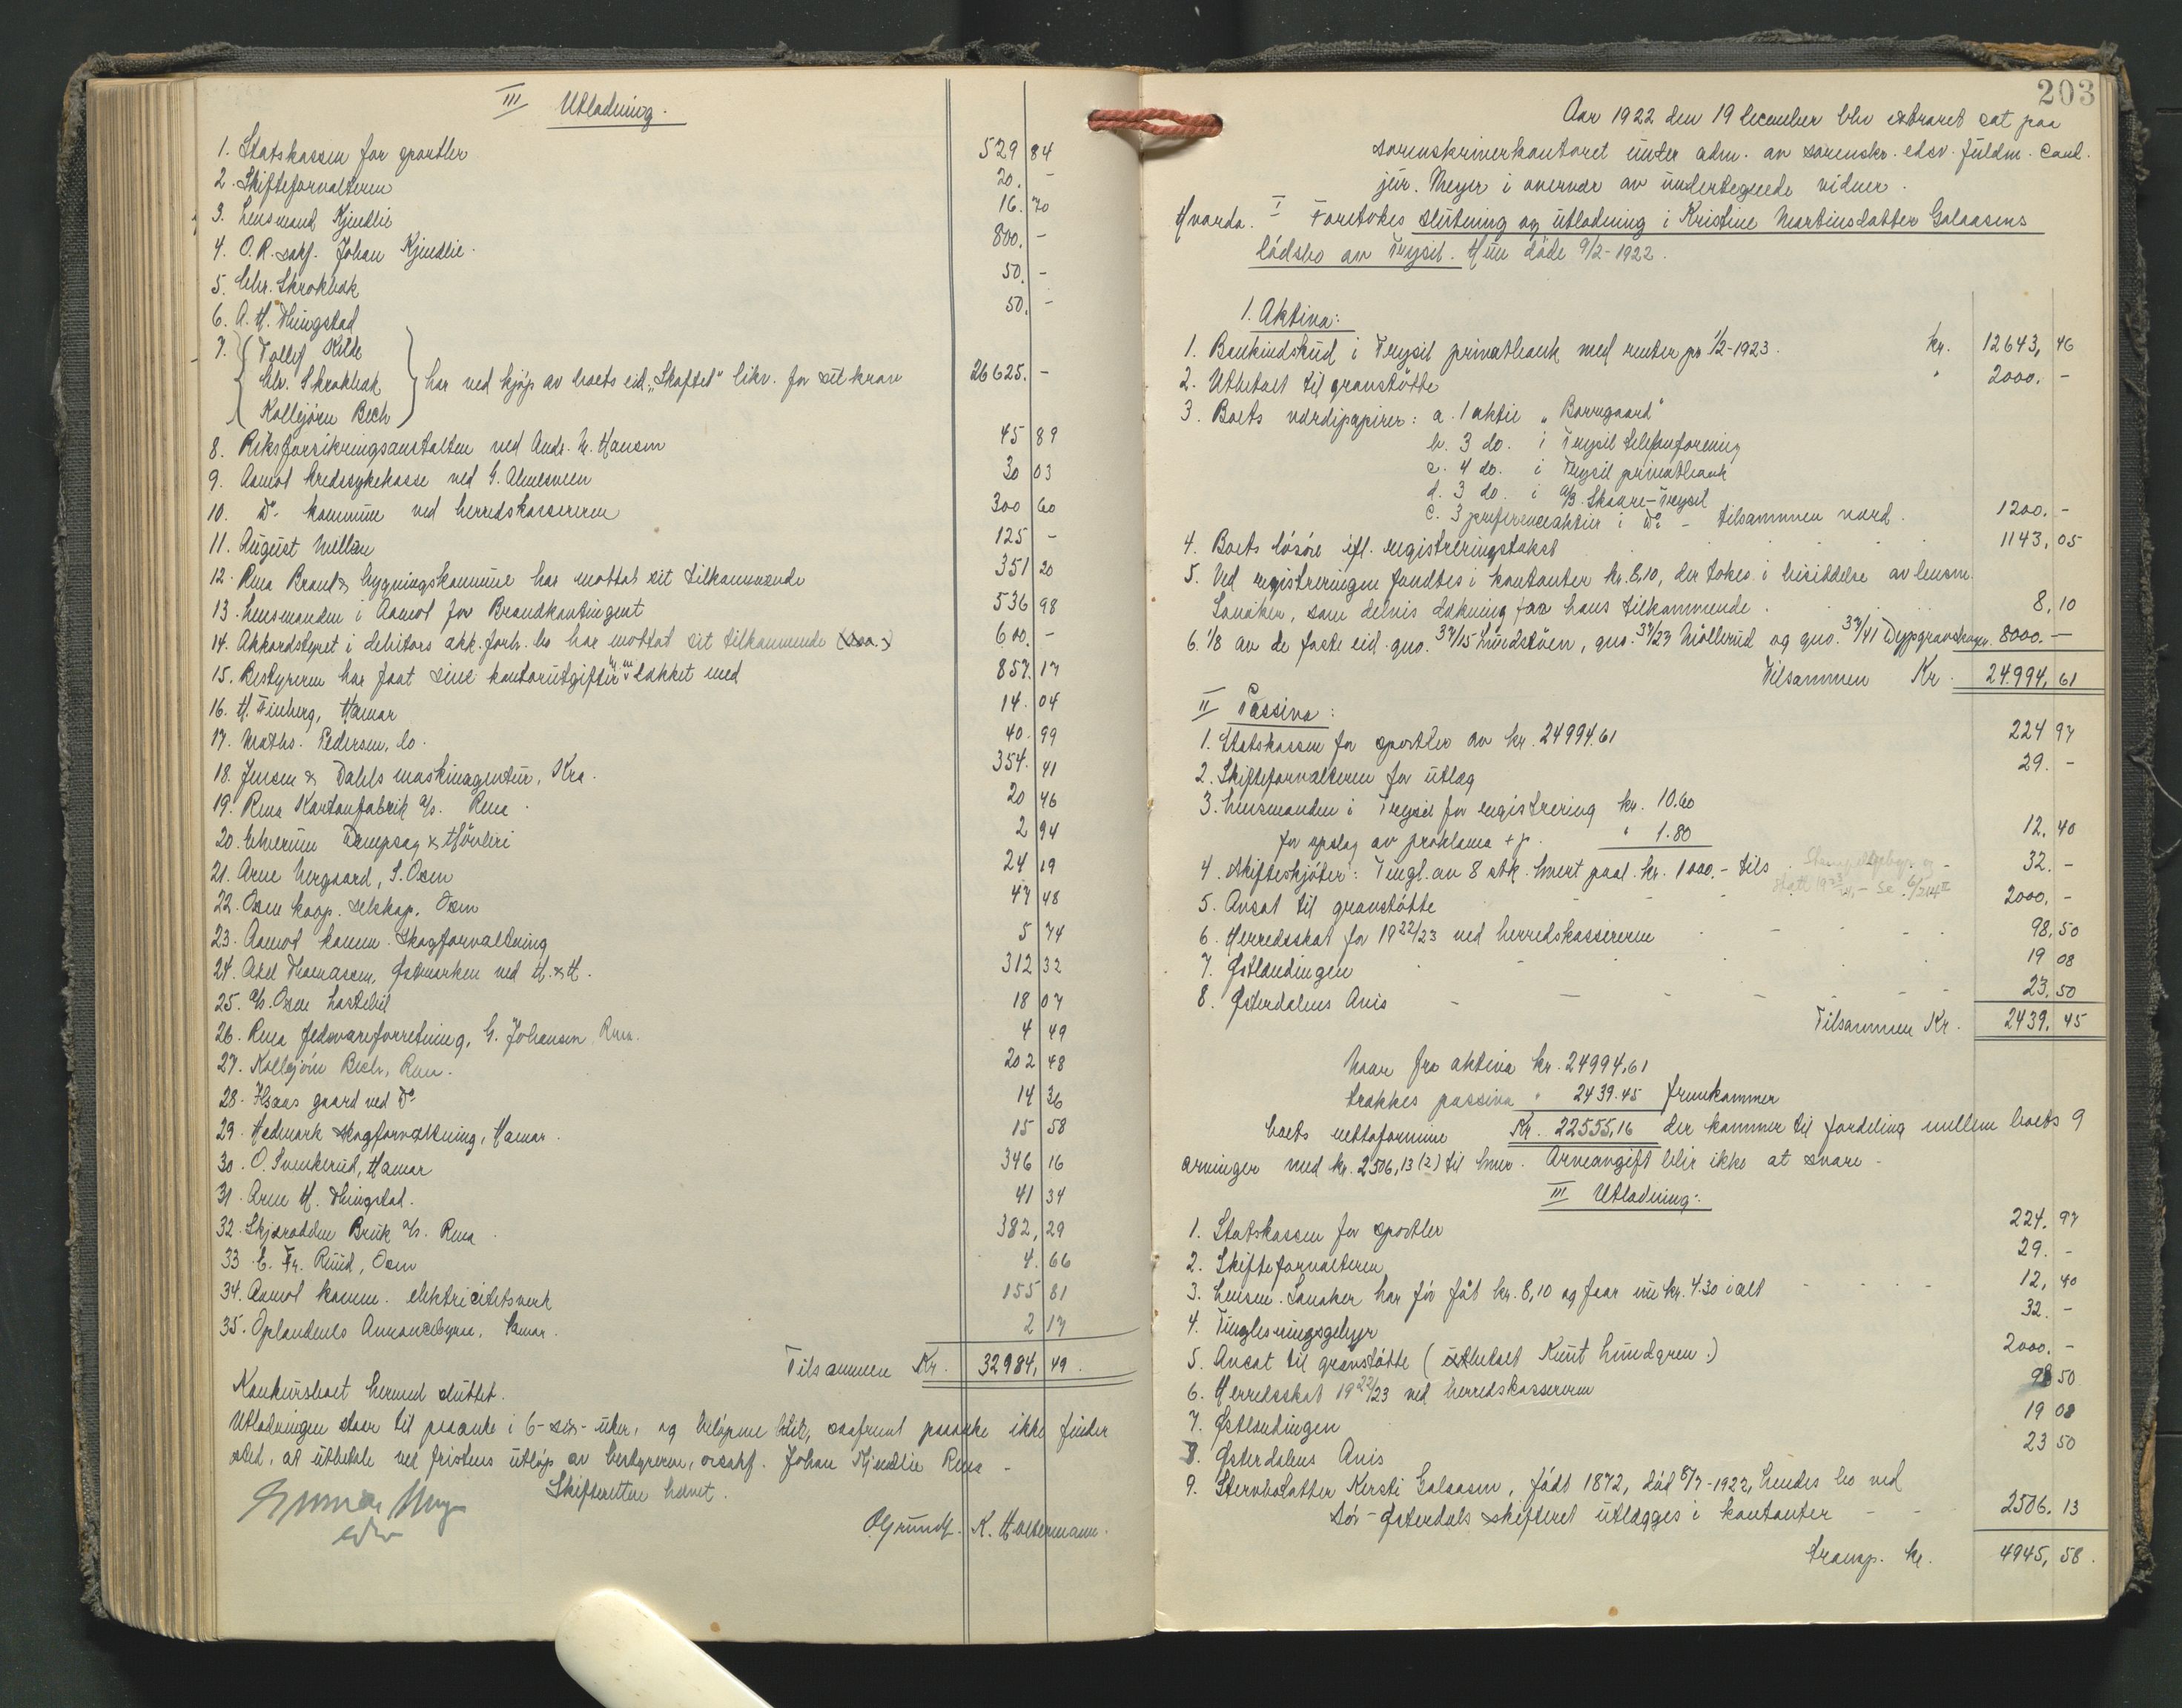 III Utlodning.
1. Statskassen for sportler 529 84
2. Skifteforvalteren 20. -
3. Lensmand Kjendlie 16. 70
4. O.R. sakf. Johan Kjendlie. 800. -
5. Chr. Skrokbæk 50. -
6. A. H. Thingstad 50. -
7. Tollef Kilde
Chr. Skrokbæk har ved kjøp av boets eid. „Skaftet" likv. for sit krav 26625. -
Kolbjörn Bech
8. Riksforsikringsanstalten ved Andr. M. Hansen 45 89
9. Aamot kredssykekasse ved G. Alvesveen 30 03
10. Do. kommune ved herredskassereren 300 60
11. August Mellem 125 -
12. Rena Brand & bygningskommune har mottat sit tilkommende 351 20
13. Lensmanden i Aamot for Brandkontingent 536 98
14. Akkordstyret i debitors akk.forh. bo har mottat sit tilkommende 600. -
15. Bestyreren har faat sine kontorutgifter m.m. dækket med 857. 17
16. H. Finberg, Hamar 14. 04
17. Maths. Pedersen, do. 40. 99
18. Jensen & Dahls maskinagentur, Kra. 354. 41
19. Rena Kartonfabrik a/s. Rena. 20 46
20. Elverum Dampsag & Hövleri 2 94
21. Arne Nergaard, S. Osen 24 19
22. Osen koop. selskap, Osen 47 48
23. Aamot komm. Skogforvaltning 5 74
24. Axel Thomassen, Østmarken ved H. & H. 312 32
25. a/s. Osen Lastebil 18 07
26. Rena fedevareforretning, G. Johansen Rena. 4 49
27. Kolbjörn Bech, Rena. 202 48
28. Haas gaard ved Do 14 36
29. Hedmark skogforvaltning, Hamar. 15 58
30. O. Svenkerud, Hamar 346 16
31. Arne H. Thingstad. 41 34
32. Skjæraddin Bruk a/s. Rena. 382, 29
33. E. Fr. Ruud, Osen 4. 66
34. Aamot komm. elektricitetsverk 155 81
35. Oplandenes Annoncebyrå, Hamar. 2 17
Tilsammen Kr. 32984, 49.
Konkursboet hermed sluttet.
Utlodningen staar til paaanke i 6-sex- uker, og beløpene blir, saafremt paaanke ikke finder
sted, at utbetale ved fristens utløp av bestyreren, orsakf. Johan Kjendlie Rena -
Skifteretten hævet.
O Grundt. K. Holtermann.
203
Aar 1922 den 19 december blev extraret sat paa
sorenskriverkontoret under adm. av sorenskr. edsv. fuldm. cand.
jur. Meyer i overvær av undertegnede vidner.
Hvorda. I Foretokes slutning og utlodning i Kristine Martinsdatter Galaasens
dödsbo av Trysil. Hun döde 9/2-1922.
1. Aktiva:
1. Bankindskud i Trysil privatbank med renter pr 1/2-1923. kr. 12643, 46
2. Utbetalt til gravstötte " 2000. -
3. Boets værdipapirer: a. 1 aktie „Borregaard"
b. 3 do. i Trysil telefonforening
c. 4 do. i Trysil privatbank
d. 3 do. i a/s. Skaare-Trysil
e. 3 preferenceaktier i Do - tilsammen værd. 1200. -
4. Boets lösöre ifl. registreringstakst 1143, 05
5. Ved registreringen fandtes i kontanter kr. 8,10, der tokes i besiddelse av lensm.
Lonåker, som delvis dækning for hans tilkommende. 8, 10
6. 1/8 av de faste eid. gno. 37/15 Lundstöen, gno. 37/23 Möllerud og gno. 37/41 Dypgravskogen. 8000. -
Tilsammen Kr. 24.994, 61
II Passiva:
1. Statskassen for sportler av kr. 24994.61 224 97
2. Skifteforvalteren for utlæg 29. -
3. Lensmanden i Trysil for registrering kr. 10.60
for opslag av proklama + p. " 1.80 12. 40
4. Skifteskjöter: Tingl. av 8 stk. hvert paal. kr. 1000.- tils 32. -
5. Avsat til gravstötte 2000. -
6. Herredsskat for 1922/23 ved herredskassereren 98. 50
7. Østlendingen 19 08
8. Østerdalens Avis 23. 50
Tilsammen Kr. 2439. 45
Naar fra aktiva kr. 24994,61
trækkes passiva " 2439.45 fremkommer
boets nettoformue Kr. 22555,16 der kommer til fordeling mellem boets 9
arvinger med kr. 2506,13 (2) til hver. Arveavgift blir ikke at svare -
III Utlodning:
1. Statskassen for sportler 224. 97
2. Skifteforvalteren 29. -
3. Lensm. Lonåker har för fåt kr. 8,10 og faar nu kr. 4.30 ialt 12, 40
4. Tinglesningsgebyr 32. -
5. Avsat til gravstötte (utbetalt Knut Lundgren.) 2000. -
6. Herredsskat 1922/23 ved herredskassereren 98 50
7. Østlendingen 19 08
8. Østerdalens Avis 23 50
9. Stervbodatter Kersti Galaasen, født 1872, död 8/7-1922, hendes bo ved
Sör-Østerdals skifteret utlægges i kontanter - - 2506. 13
transp. kr. 4945, 58.